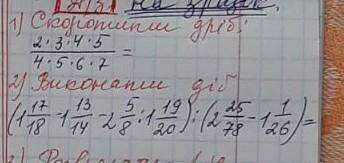 на зразок.
1) Скоротити дріб:
2·3·4·5/4·5·6·7 =
2) Виконати дії
(1 17/18 · 1 13/14 - 2 5/8 : 1 19/20) : (2 25/78 - 1 1/26) =